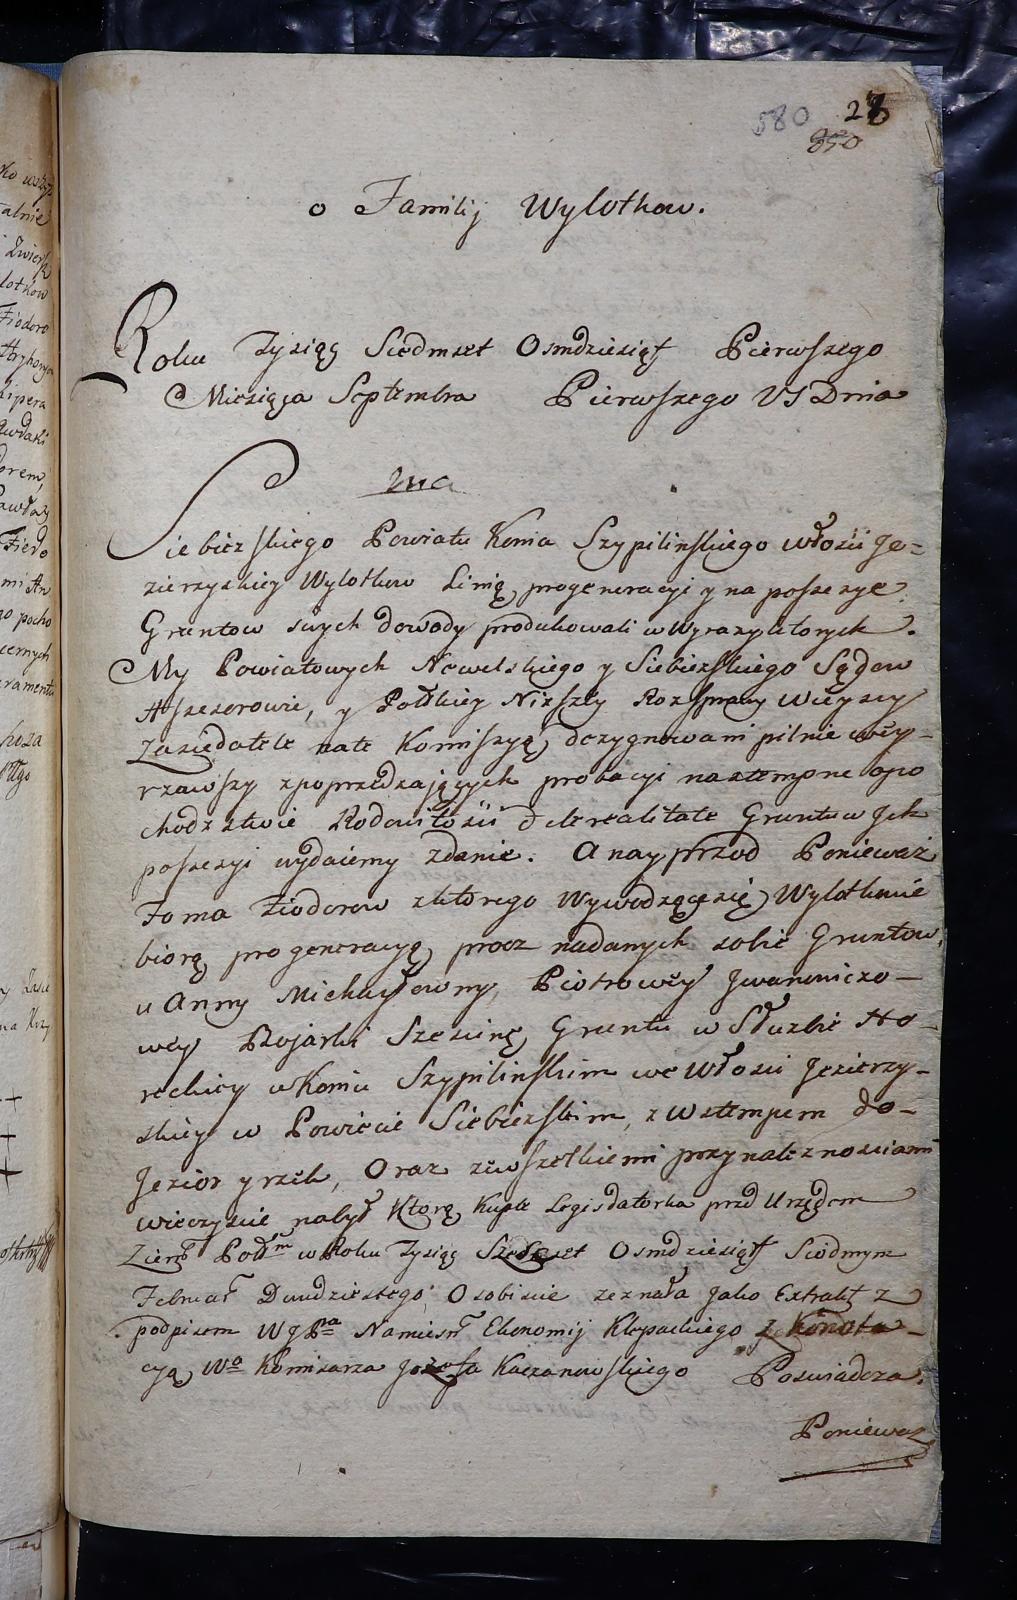 580 28
850
o Familij Wylotkow.
Roku Tysiąc Siedmset Osmdziesiąt Pierwszego
Miesiąca Septembra Pierwszego VS Dnia
Siebiezskiego Powiatu Konia Szypilinskiego włosii Je=
zierzyskiey Wylotkow Linię progeneracyi y na possesye
Gruntow swych dowody produkowali w Wyrazy ktorych.
My Powiatowych Newelskiego y Siebiezskiego Sądow
Assessorowie, y Połckiey Nizszey Rozsprawy Wieyscy
Zasiedatele nate Komissyą dezygnowani pilnie wey-
rzawszy zpoprzedzających probacyi nastempne opo
chodzstwie Rodowitosii de realitate Gruntow Jch
possesyi wydaiemy zdanie. A nayprzod Ponieważ
Foma Fiodorow zktorego Wywodzącesię Wylotkowie
biorą progeneracyą procz nadanych sobie Gruntow,
u Anny Michayłowny Piotrowey Jwanowiczo-
wey Bojarki Szescinę Gruntu w Słuzbie Ho-
rechiey w Koniu Szypilinskim we Włosii Jezierzy-
skiey w Powiecie Siebiezskim, z Wstempem do-
Jezior y rzek, Oraz zewszelkiemi przynaleznosciami
wieczyscie nabył Ktorą Kuple Legisdatorka przed Urzędem
Ziem: Poł: w Roku Tysiąc Szescset Osmdziesiąt Siodmym
Februar: Dwudziestego, Osobiscie zeznała Jako Extrakt z
podpisem Namiesn: Ekonomij Klepackiego z Konota-
cyą Wo Komisarza Jozefa Kaczanowskiego Poswiadcza.
Poniewaz